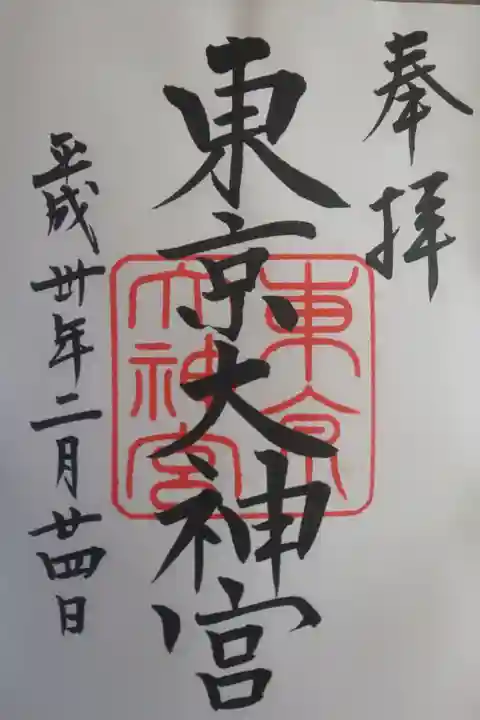 奉拝
東京大神宮
東京
大神宮
平成卅年二月廿四日